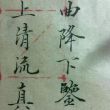 曲降下
上清流真